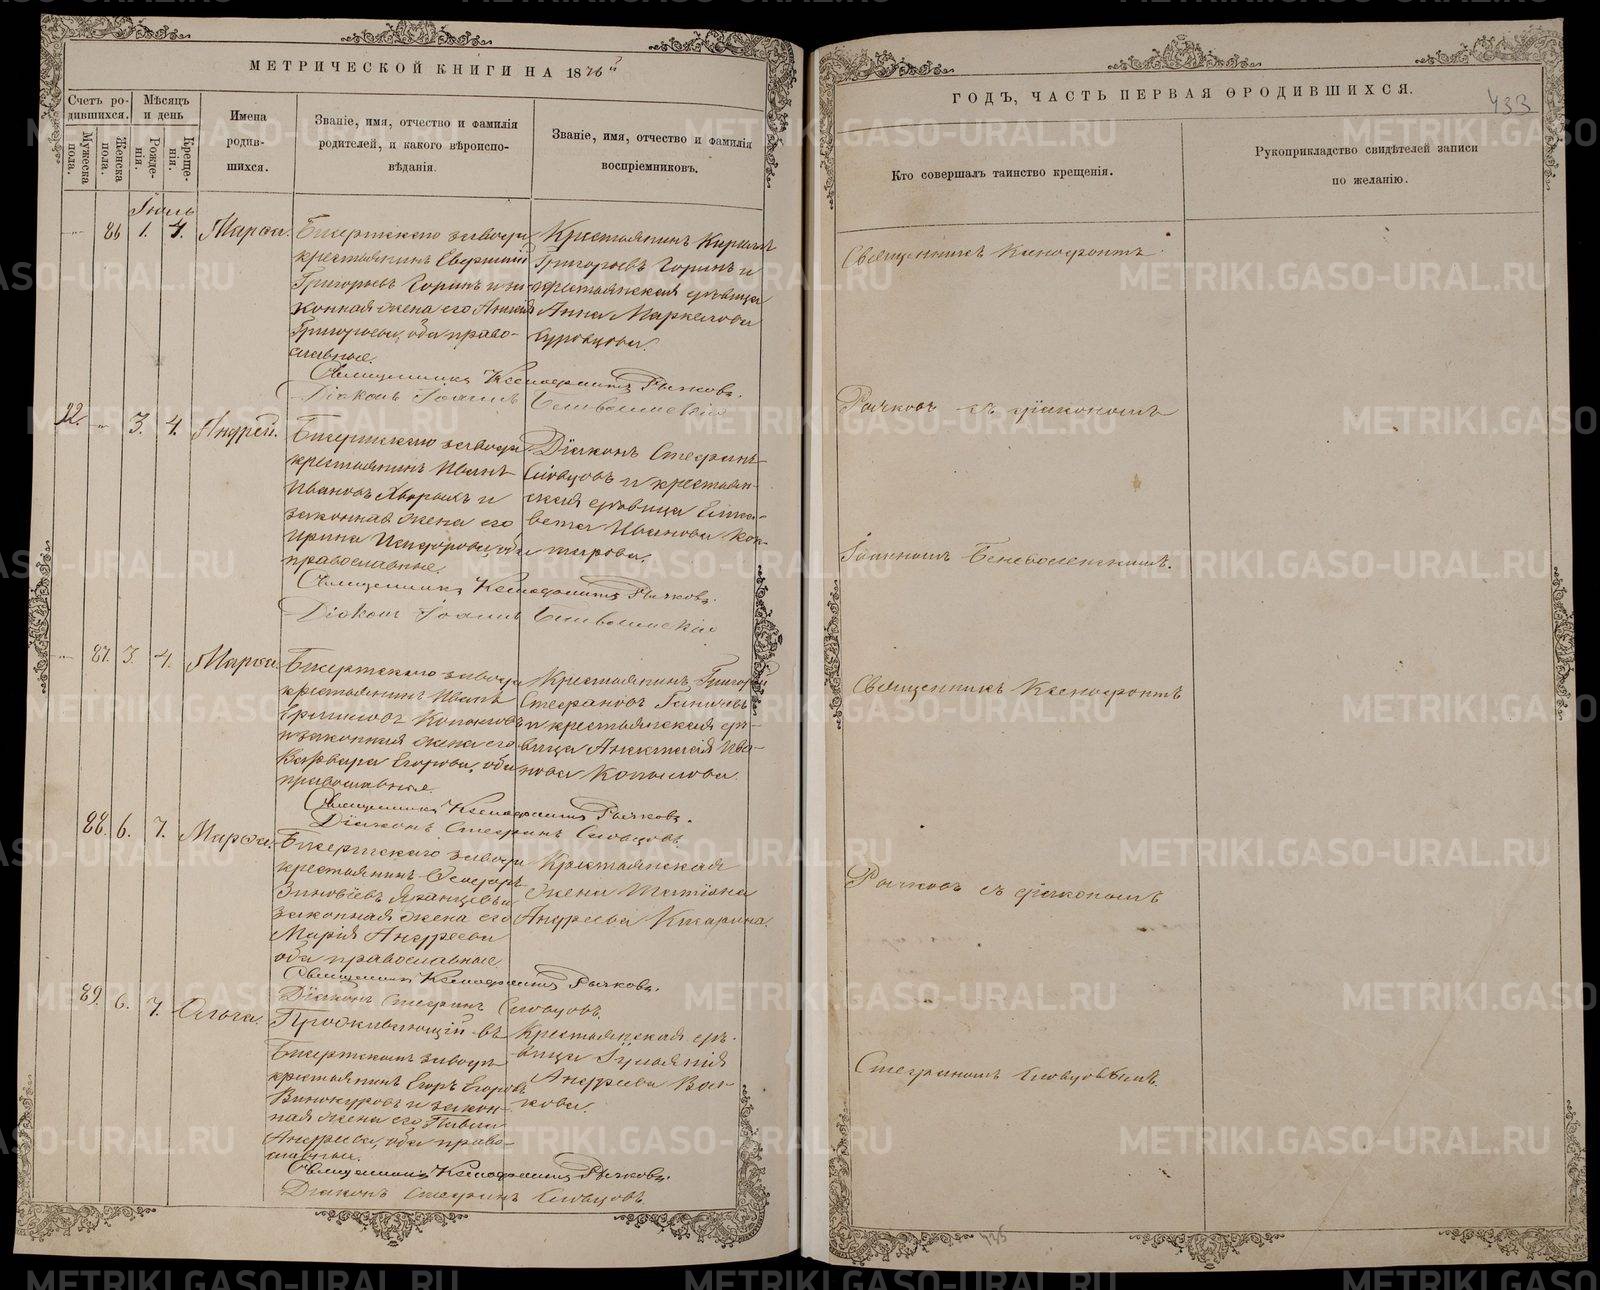 МЕТРИЧЕСКОЙ КНИГИ НА 1876й
Счетъ ро-
дившихся.
Мѣсяцъ
и день
Мужеска
пола.
Женска
пола.
Рожде-
нія.
Креще-
нія.
Имена
родив-
шихся.
Званіе, имя, отчество и фамилія
родителей, и какого вѣроиспо-
вѣданія.
Званіе, имя, отчество и фамилія
воспріемниковъ.
Іюль
86 1. 4. Марѳа.
Бисертскаго завода
крестьянинъ
Григорьевъ Горинъ и за-
конная жена его
Григорьева, оба право-
славные.
Крестьянинъ Кириллъ
Григорьевъ Горинъ и
крестьянская дѣвица
Анна Маркелова
Священникъ Ксенофонтъ Рычковъ.
Діаконъ Іоаннъ
22. 3. 4. Андрей.
Бисертскаго завода
крестьянинъ Иванъ
Ивановъ и
законная жена его
Ирина оба
православные.
Діаконъ Стефанъ
Словцовъ и крестьян-
ская дѣвица Елиса-
вета Иванова Кок-
шарова.
Священникъ Ксенофонтъ Рычковъ.
Діаконъ Іоаннъ
87. 3. 4. Марѳа.
Бисертскаго завода
крестьянинъ Иванъ
и законная жена его
Варвара Егорова, оба
православные.
Крестьянинъ Григорій
Стефановъ
и крестьянская дѣ-
вица Анастасія Ива-
нова Копылова.
Священникъ Ксенофонтъ Рычковъ.
Діаконъ Стефанъ Словцовъ.
88. 6. 7. Марѳа.
Бисертскаго завода
крестьянинъ Ѳеодоръ
Зиновіевъ
законная жена его
Марія Андреева
оба православные.
Крестьянская
жена Татіана
Андреева
Священникъ Ксенофонтъ Рычковъ.
Діаконъ Стефанъ Словцовъ.
89. 6. 7. Ольга.
Проживающій въ
Бисертскомъ заводѣ
крестьянинъ Егоръ Егоровъ
Винокуровъ и закон-
ная жена его
Андреева, оба право-
славные.
Крестьянская дѣ-
вица
Андреева Вол-
кова.
Священникъ Ксенофонтъ Рычковъ.
Діаконъ Стефанъ Словцовъ
ГОДЪ, ЧАСТЬ ПЕРВАЯ ѲРОДИВШИХСЯ.
433
Кто совершалъ таинство крещенія.
Рукоприкладство свидѣтелей записи
по желанію.
Священникъ Ксенофонтъ
Рычковъ съ діакономъ
Іоанномъ
Священникъ Ксенофонтъ
Рычковъ съ діакономъ
Стефаномъ Словцовымъ.
METRIKI.GASO-URAL.RU